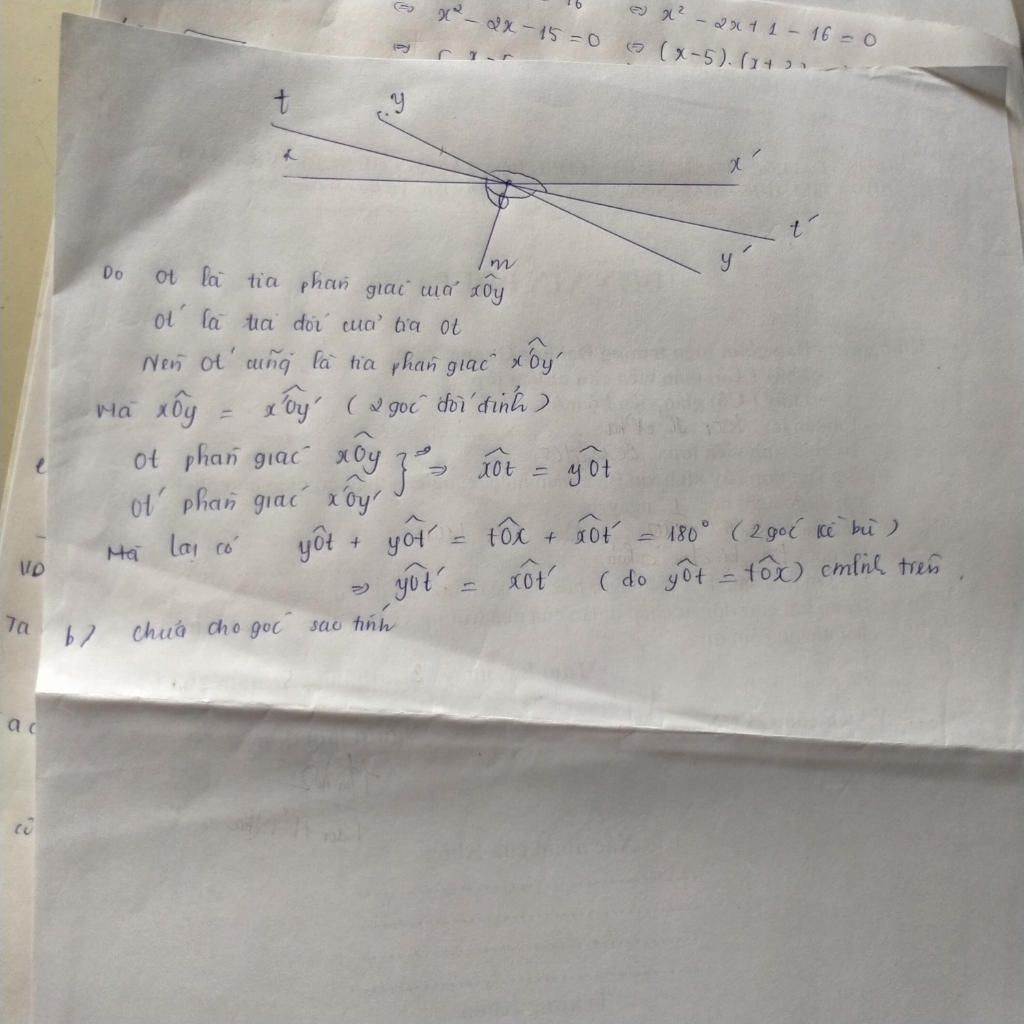 ⇔ x² - 2x - 15 = 0 ⇔ x² - 2x + 1 - 16 = 0
⇔ (x-5).(x+3)
t y
x x'
O t'
m y'
Do Ot là tia phân giác của xÔy
Ot' là tia đối của tia Ot
Nên Ot' cũng là tia phân giác x'Ôy'
Mà xÔy = x'Ôy' (2 góc đối đỉnh)
Ot phân giác xÔy
} ⇒ xÔt = yÔt
Ot' phân giác x'Ôy'
Mà lại có yÔt + yÔt' = tÔx + xÔt' = 180° (2 góc kề bù)
⇒ yÔt' = xÔt' (do yÔt = tÔx) cminh trên.
VD
Ta
b) chưa cho góc sao tính